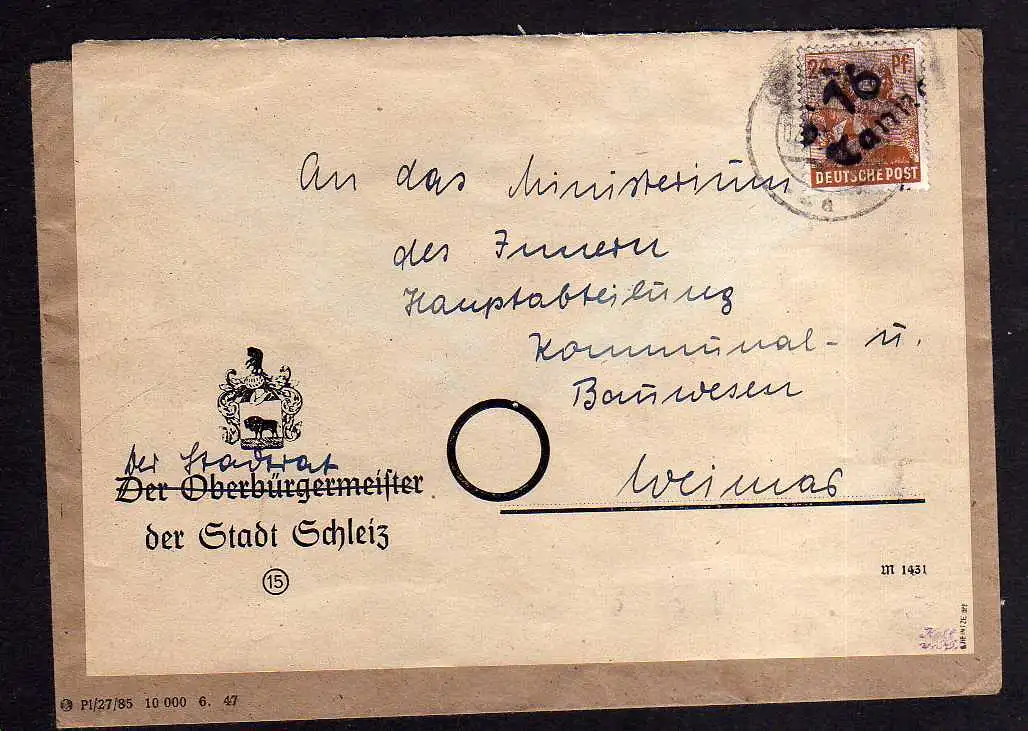 24 Pf.
16
Tanna
DEUTSCHE POST
An das Ministerium
des Innern
Hauptabteilung
Kommunal- u.
Bauwesen
Weimar
Der Stadtrat
Der Oberbürgermeister
der Stadt Schleiz
15
M 1431
Pl/27/85 10 000 6. 47